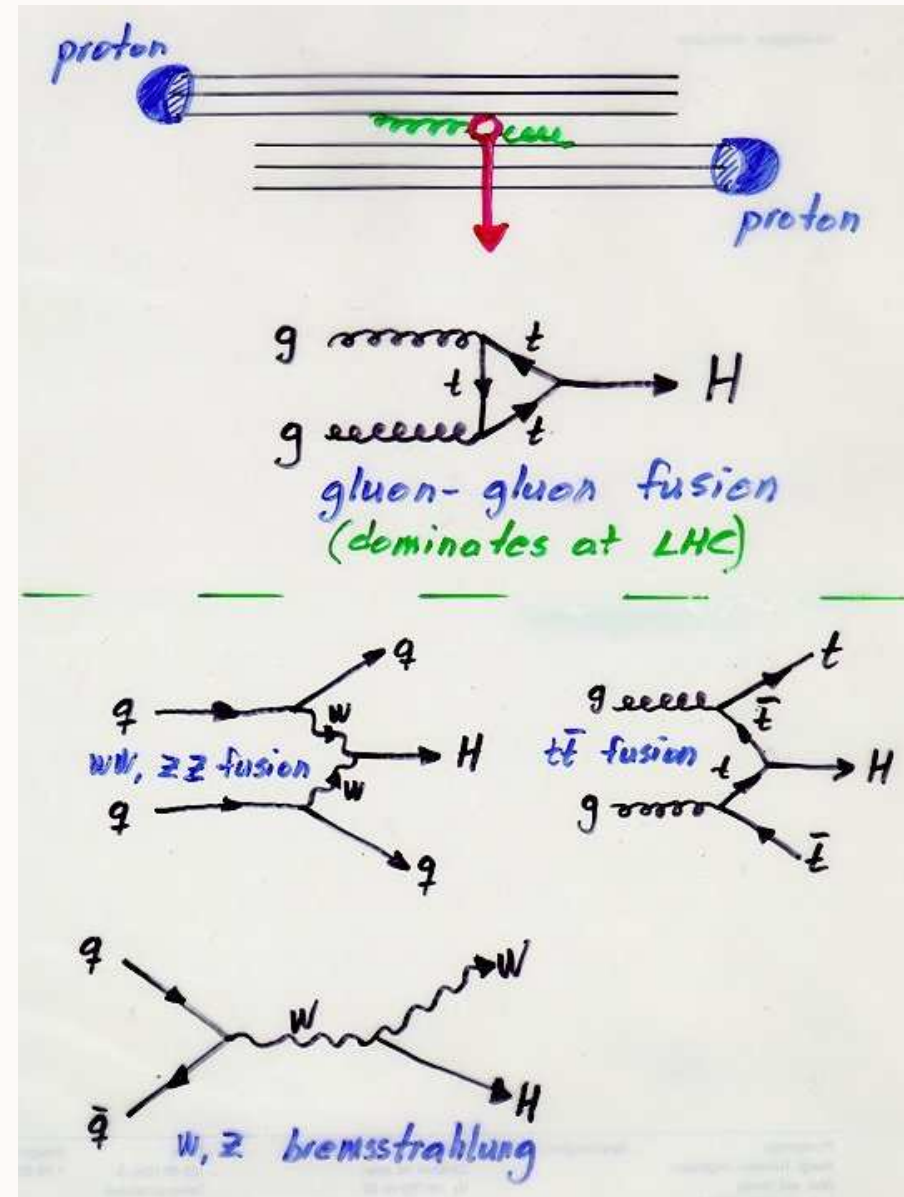 proton
proton
g
t
t
H
g
t
gluon-gluon fusion
(dominates at LHC)
q
q
w
WW, ZZ fusion
H
w
q
q
t
g
t̄
tt̄ fusion
t
H
g
t̄
q
W
W
H
q̄
W, Z bremsstrahlung